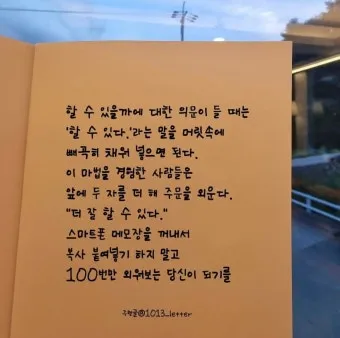 할 수 있을까에 대한 의문이 들 때는
'할 수 있다.'라는 말을 머릿속에
빼곡히 채워 넣으면 된다.
이 마법을 경험한 사람들은
앞에 두 자를 더 해 주문을 외운다.
"더 잘 할 수 있다."
스마트폰 메모장을 꺼내서
복사 붙여넣기 하지 말고
100번만 외워보는 당신이 되기를
@1013_letter